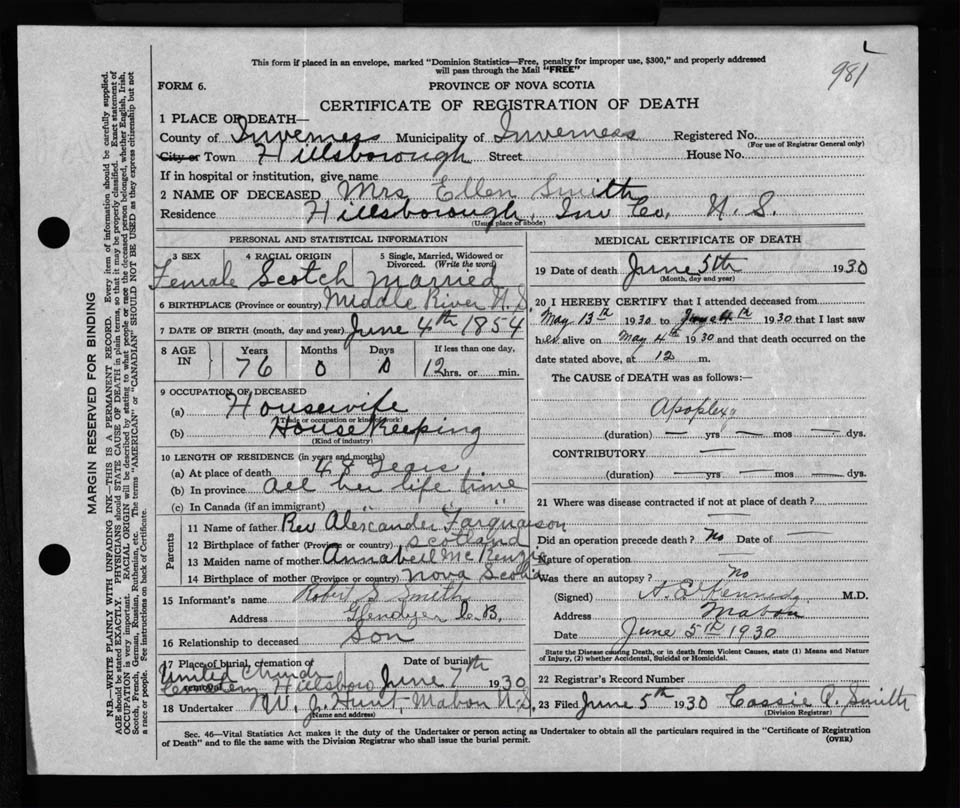 981
This form if placed in an envelope, marked "Dominion Statistics—Free, penalty for improper use, $300," and properly addressed
will pass through the Mail "FREE"
FORM 6.
PROVINCE OF NOVA SCOTIA
CERTIFICATE OF REGISTRATION OF DEATH
1 PLACE OF DEATH—
County of Inverness Municipality of Inverness Registered No.
(For use of Registrar General only)
City or Town Hillsborough Street House No.
If in hospital or institution, give name
2 NAME OF DECEASED Mrs Ellen Smith
Residence Hillsborough, Inv Co, N. S.
(Usual place of abode)
PERSONAL AND STATISTICAL INFORMATION
3 SEX 4 RACIAL ORIGIN 5 Single, Married, Widowed or Divorced. (Write the word)
Female Scotch Married
6 BIRTHPLACE (Province or country) Middle River N.S.
7 DATE OF BIRTH (month, day and year) June 4th 1854
8 AGE IN Years Months Days If less than one day,
76 0 0 12 hrs. or min.
9 OCCUPATION OF DECEASED
(a) Housewife
(Trade or occupation or kind of work)
(b) House Keeping
(Kind of industry)
10 LENGTH OF RESIDENCE (in years and months)
(a) At place of death 48 Years
(b) In province all her life time
(c) In Canada (if an immigrant) " " " "
Parents
11 Name of father Rev Alexcander Farquharson
12 Birthplace of father (Province or country) Scotland
13 Maiden name of mother Annabell McKenzie
14 Birthplace of mother (Province or country) Nova Scotia
15 Informant's name Robert S Smith
Address Glendyer C.B.
16 Relationship to deceased Son
17 Place of burial, cremation or removal Date of burial
United Church Cemetery Hillsboro June 7th 1930
18 Undertaker W. J. Hunt, Mabou N.S.
(Name and address)
MEDICAL CERTIFICATE OF DEATH
19 Date of death June 5th 1930
(Month, day and year)
20 I HEREBY CERTIFY that I attended deceased from
May 13th 1930 to June 4th 1930 that I last saw
her alive on May 4th 1930 and that death occurred on the
date stated above, at 12 m.
The CAUSE of DEATH was as follows:—
Apoplexy
(duration) — yrs — mos — dys.
CONTRIBUTORY —
(duration) — yrs — mos — dys.
21 Where was disease contracted if not at place of death?
Did an operation precede death? No Date of —
Nature of operation —
Was there an autopsy? No
(Signed) A. E Kennedy M.D.
Address Mabou
Date June 5th 1930
State the Disease causing Death, or in death from Violent Causes, state (1) Means and Nature
of Injury, (2) whether Accidental, Suicidal or Homicidal.
22 Registrars Record Number
23 Filed June 5th 1930 Cassie P. Smith
(Division Registrar)
Sec. 46—Vital Statistics Act makes it the duty of the Undertaker or person acting as Undertaker to obtain all the particulars required in the "Certificate of Registration
of Death" and to file the same with the Division Registrar who shall issue the burial permit. (OVER)
MARGIN RESERVED FOR BINDING
N.B.—WRITE PLAINLY WITH UNFADING INK—THIS IS A PERMANENT RECORD. Every item of information should be carefully supplied.
AGE should be stated EXACTLY. PHYSICIANS should STATE CAUSE OF DEATH in plain terms, so that it may be properly classified. Exact statement of
OCCUPATION is very important. RACIAL ORIGIN will be described by stating to what people or race the deceased person belonged, whether English, Irish,
Scotch, French, German, Russian, Ruthenian, etc. The terms "AMERICAN" or "CANADIAN" SHOULD NOT BE USED as they express citizenship but not
a race or people. See instructions on back of Certificate.